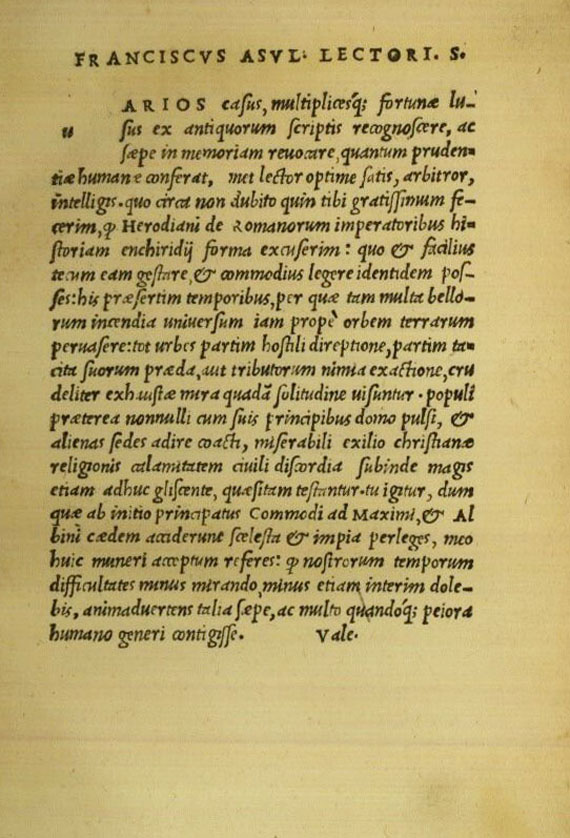 FRANCISCVS ASVL. LECTORI. S.
u ARIOS casus, multiplicesq; fortunæ lu-
sus ex antiquorum scriptis recognoscere, ac
sæpe in memoriam reuocare, quantum pruden-
tiæ humanæ conferat, met lector optime satis, arbitror,
intelligis. quo circa non dubito quin tibi gratissimum fe-
cerim, ꝙ Herodiani de Romanorum imperatoribus hi-
storiam enchiridij forma excuserim: quo & facilius
tecum eam gestare, & commodius legere identidem pos-
ses: his præsertim temporibus, per quæ tam multa bello-
rum incendia uniuersum iam propè orbem terrarum
peruasere: tot urbes partim hostili direptione, partim ta-
cita suorum præda, aut tributorum nimia exactione, cru
deliter exhaustæ mira quadã solitudine uisuntur. populi
præterea nonnulli cum suis principibus domo pulsi, &
alienas sedes adire coacti, miserabili exilio christianæ
religionis calamitatem ciuili discordia subinde magis
etiam adhuc gliscente, quæsitam testantur. tu igitur, dum
quæ ab initio principatus Commodi ad Maximi, & Al
bini cædem acciderunt scelesta & impia perleges, meo
huic muneri acceptum referes: ꝙ nostrorum temporum
difficultates minus mirando, minus etiam interim dole-
bis, animaduertens talia sæpe, ac multo quandoq; peiora
humano generi contigisse. Vale.